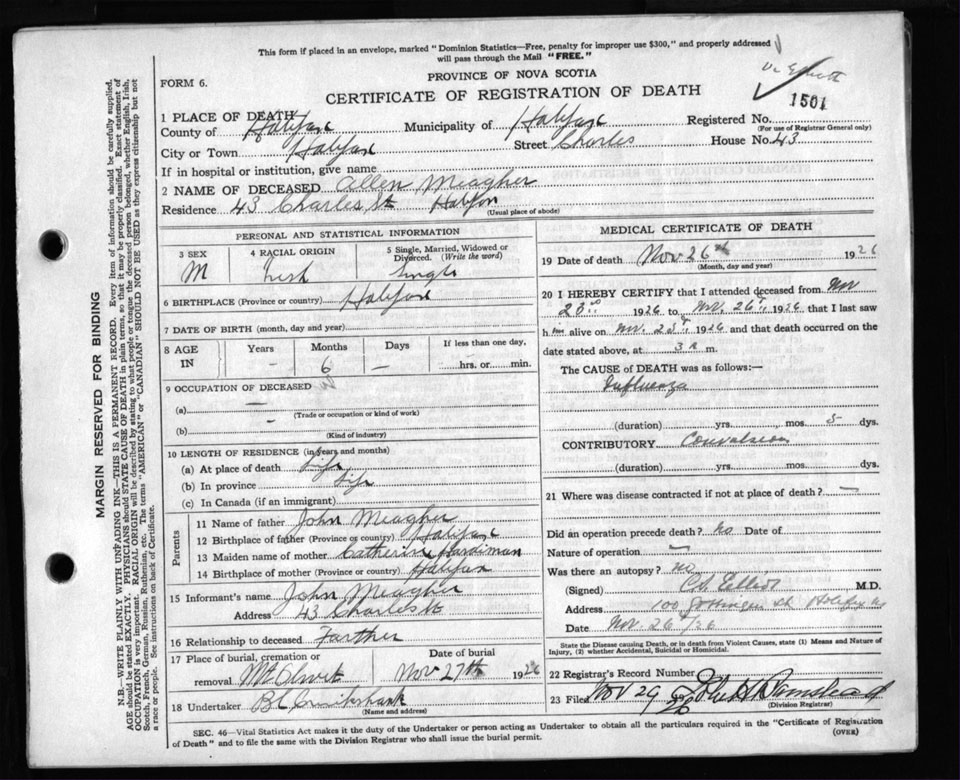 This form if placed in an envelope, marked "Dominion Statistics—Free, penalty for improper use $300," and properly addressed
will pass through the Mail "FREE."
PROVINCE OF NOVA SCOTIA
FORM 6.
CERTIFICATE OF REGISTRATION OF DEATH
1501
1 PLACE OF DEATH
County of Halifax Municipality of Halifax Registered No.
(For use of Registrar General only)
City or Town Halifax Street Charles House No. 43
If in hospital or institution, give name
2 NAME OF DECEASED Allen Meagher
Residence 43 Charles St Halifax
(Usual place of abode)
PERSONAL AND STATISTICAL INFORMATION
3 SEX M
4 RACIAL ORIGIN Irish
5 Single, Married, Widowed or Divorced. (Write the word) Single
6 BIRTHPLACE (Province or country) Halifax
7 DATE OF BIRTH (month, day and year)
8 AGE IN Years – Months 6 Days – If less than one day, hrs. or min.
9 OCCUPATION OF DECEASED
(a) –
(Trade or occupation or kind of work)
(b) –
(Kind of industry)
10 LENGTH OF RESIDENCE (in years and months)
(a) At place of death Life
(b) In province Life
(c) In Canada (if an immigrant)
Parents
11 Name of father John Meagher
12 Birthplace of father (Province or country) Halifax
13 Maiden name of mother Catherine Hardiman
14 Birthplace of mother (Province or country) Halifax
15 Informant's name John Meagher
Address 43 Charles St
16 Relationship to deceased Farther
17 Place of burial, cremation or removal Mt Olivet
Date of burial Nov 27th 1926
18 Undertaker
(Name and address)
MEDICAL CERTIFICATE OF DEATH
19 Date of death Nov 26th 1926
(Month, day and year)
20 I HEREBY CERTIFY that I attended deceased from Nov
1926 to Nov. 26th 1926 that I last saw
him alive on Nov. 1926 and that death occurred on the
date stated above, at 3 a m.
The CAUSE of DEATH was as follows:—
Influenza
(duration) yrs. mos. 5 dys.
CONTRIBUTORY Convulsions
(duration) yrs. mos. dys.
21 Where was disease contracted if not at place of death? —
Did an operation precede death? No Date of
Nature of operation —
Was there an autopsy? No
(Signed) Elliot M.D.
Address 100 Gottingen St Halifax NS
Date Nov 26th/26
State the Disease causing Death, or in death from Violent Causes, state (1) Means and Nature of
Injury, (2) whether Accidental, Suicidal or Homicidal.
22 Registrar's Record Number
23 Filed Nov 29
(Division Registrar)
SEC. 46—Vital Statistics Act makes it the duty of the Undertaker or person acting as Undertaker to obtain all the particulars required in the "Certificate of Registration
of Death" and to file the same with the Division Registrar who shall issue the burial permit.
(OVER)
MARGIN RESERVED FOR BINDING
N.B.—WRITE PLAINLY WITH UNFADING INK—THIS IS A PERMANENT RECORD. Every item of information should be carefully supplied.
AGE should be stated EXACTLY. PHYSICIANS should STATE CAUSE OF DEATH in plain terms, so that it may be properly classified. Exact statement of
OCCUPATION is very important. RACIAL ORIGIN will be described by stating to what people or tongue the deceased person belonged, whether English, Irish,
Scotch, French, German, Russian, Ruthenian, etc. The terms "AMERICAN" or "CANADIAN" SHOULD NOT BE USED as they express citizenship but not
a race or people. See instructions on back of Certificate.